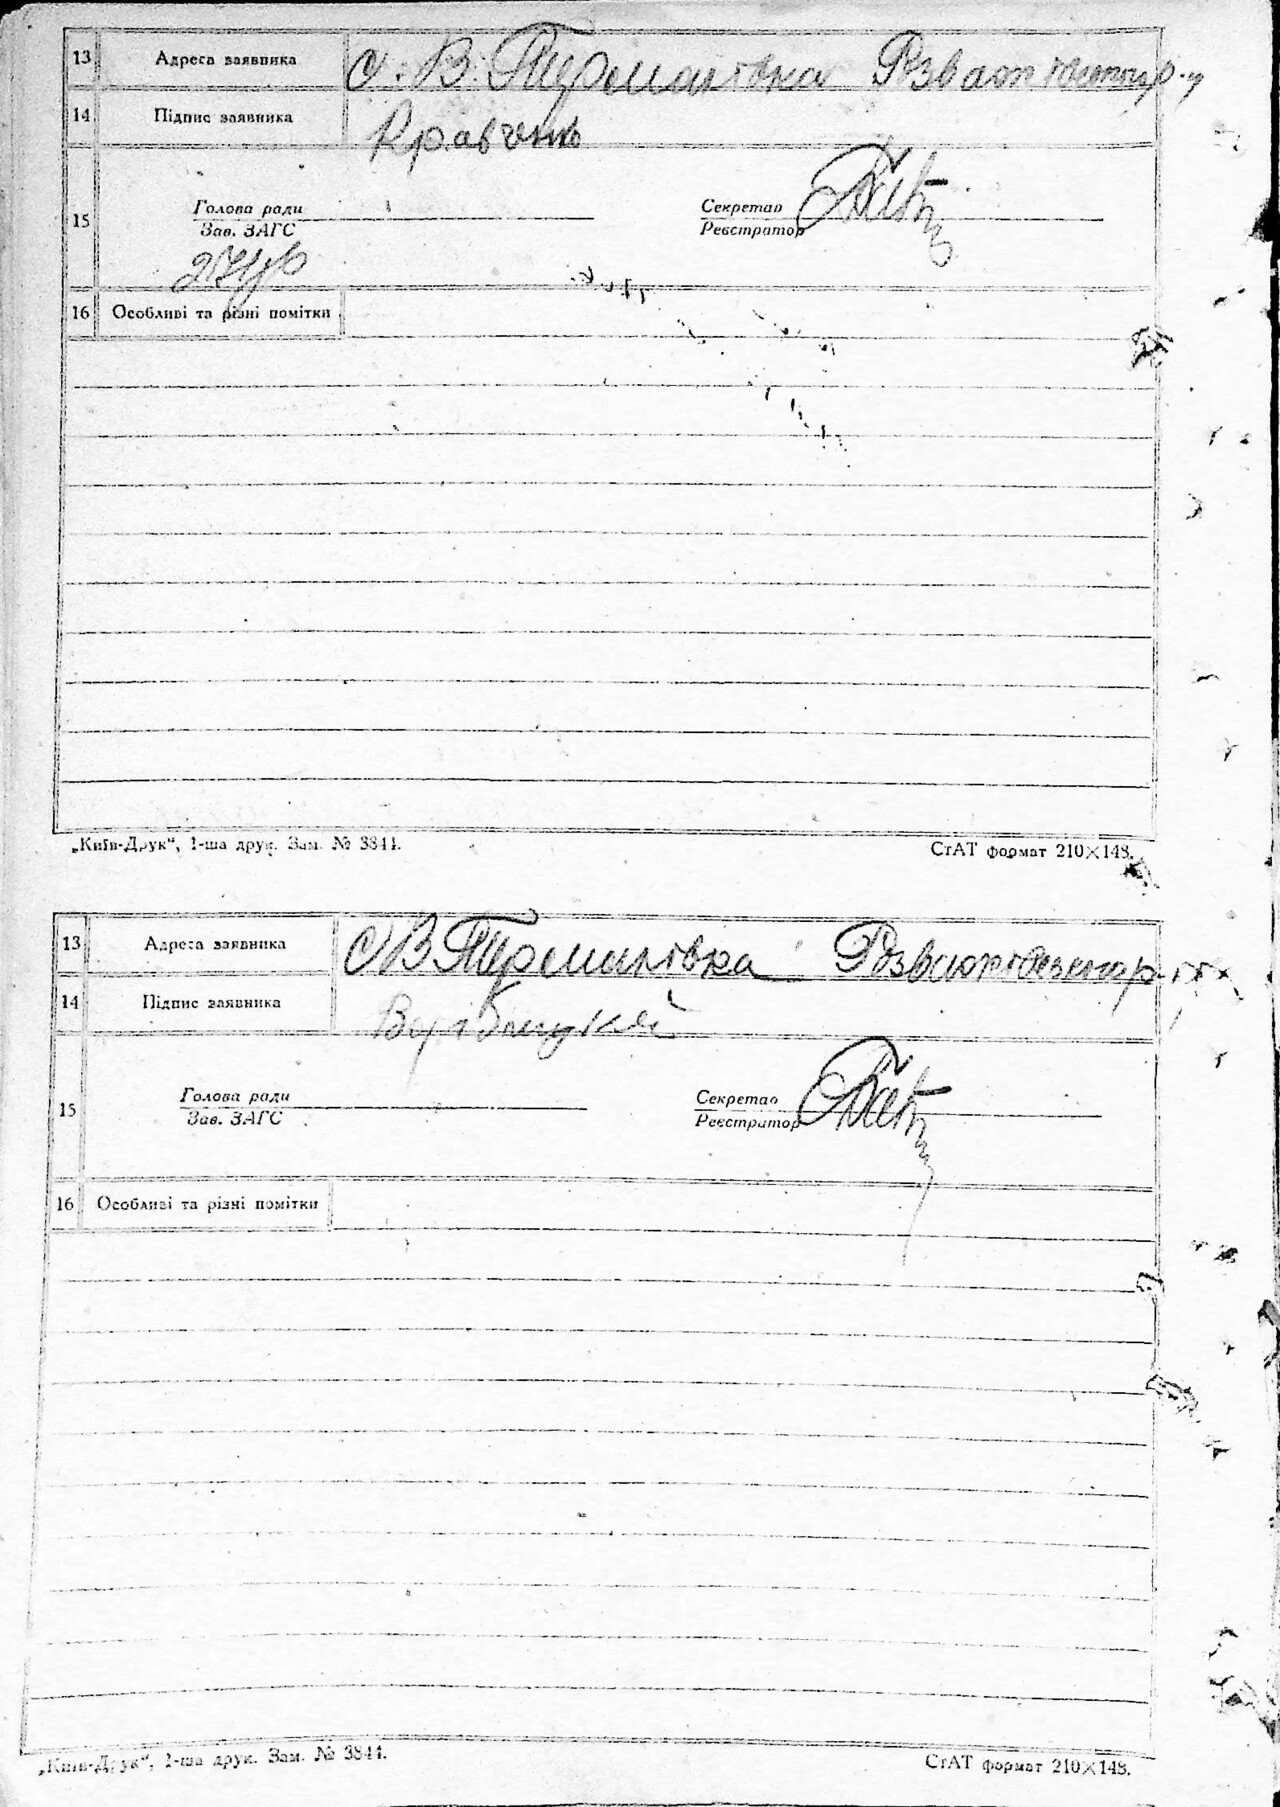 13 Адреса заявника с. В. Термахівка Розважівськ. р-у
14 Підпис заявника Кравчонь
15
Голова ради Секретар
Зав. ЗАГС Реєстратор
16 Особливі та різні помітки
„Київ-Друк“, 1-ша друк. Зам. № 3844.
СтАТ формат 210×148.
13 Адреса заявника с В Термахівка
14 Підпис заявника
15
Голова ради Секретар
Зав. ЗАГС Реєстратор
16 Особливі та різні помітки
„Київ-Друк“, 1-ша друк. Зам. № 3844.
СтАТ формат 210×148.